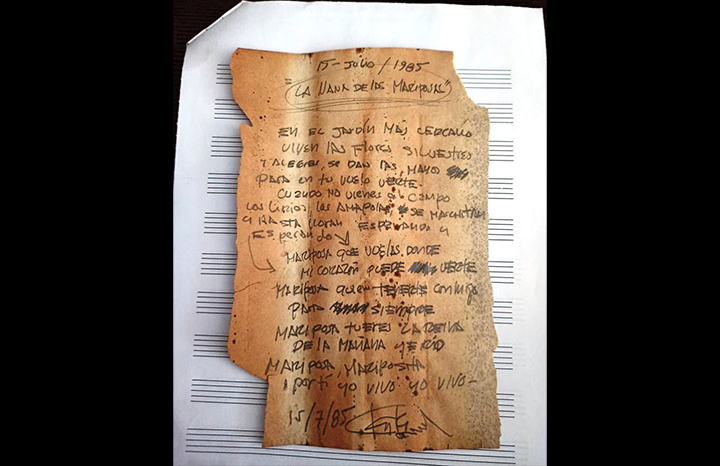 15-JULIO/1985
"LA NANA DE LAS MARIPOSAS"
EN EL JARDÍN MÁS CERCANO
VIVEN LAS FLORES SILVESTRES
Y ALEGRES, SE DAN LAS MANOS
PARA EN TU VUELO VERTE.
CUANDO NO VIENES AL CAMPO
LOS LIRIOS, LAS AMAPOLAS, SE MARCHITAN
Y HASTA LLORAN ESPERANDO Y
ESPERANDO
MARIPOSA QUE VUELAS DONDE
MI CORAZÓN PUEDE VERTE
MARIPOSA QUIERO TENERTE CONMIGO
PARA SIEMPRE
MARIPOSA TU ERES LA REINA
DE LA MAÑANA Y EL RÍO
MARIPOSA, MARIPOSITA
POR TÍ YO VIVO YO VIVO-
15/7/85